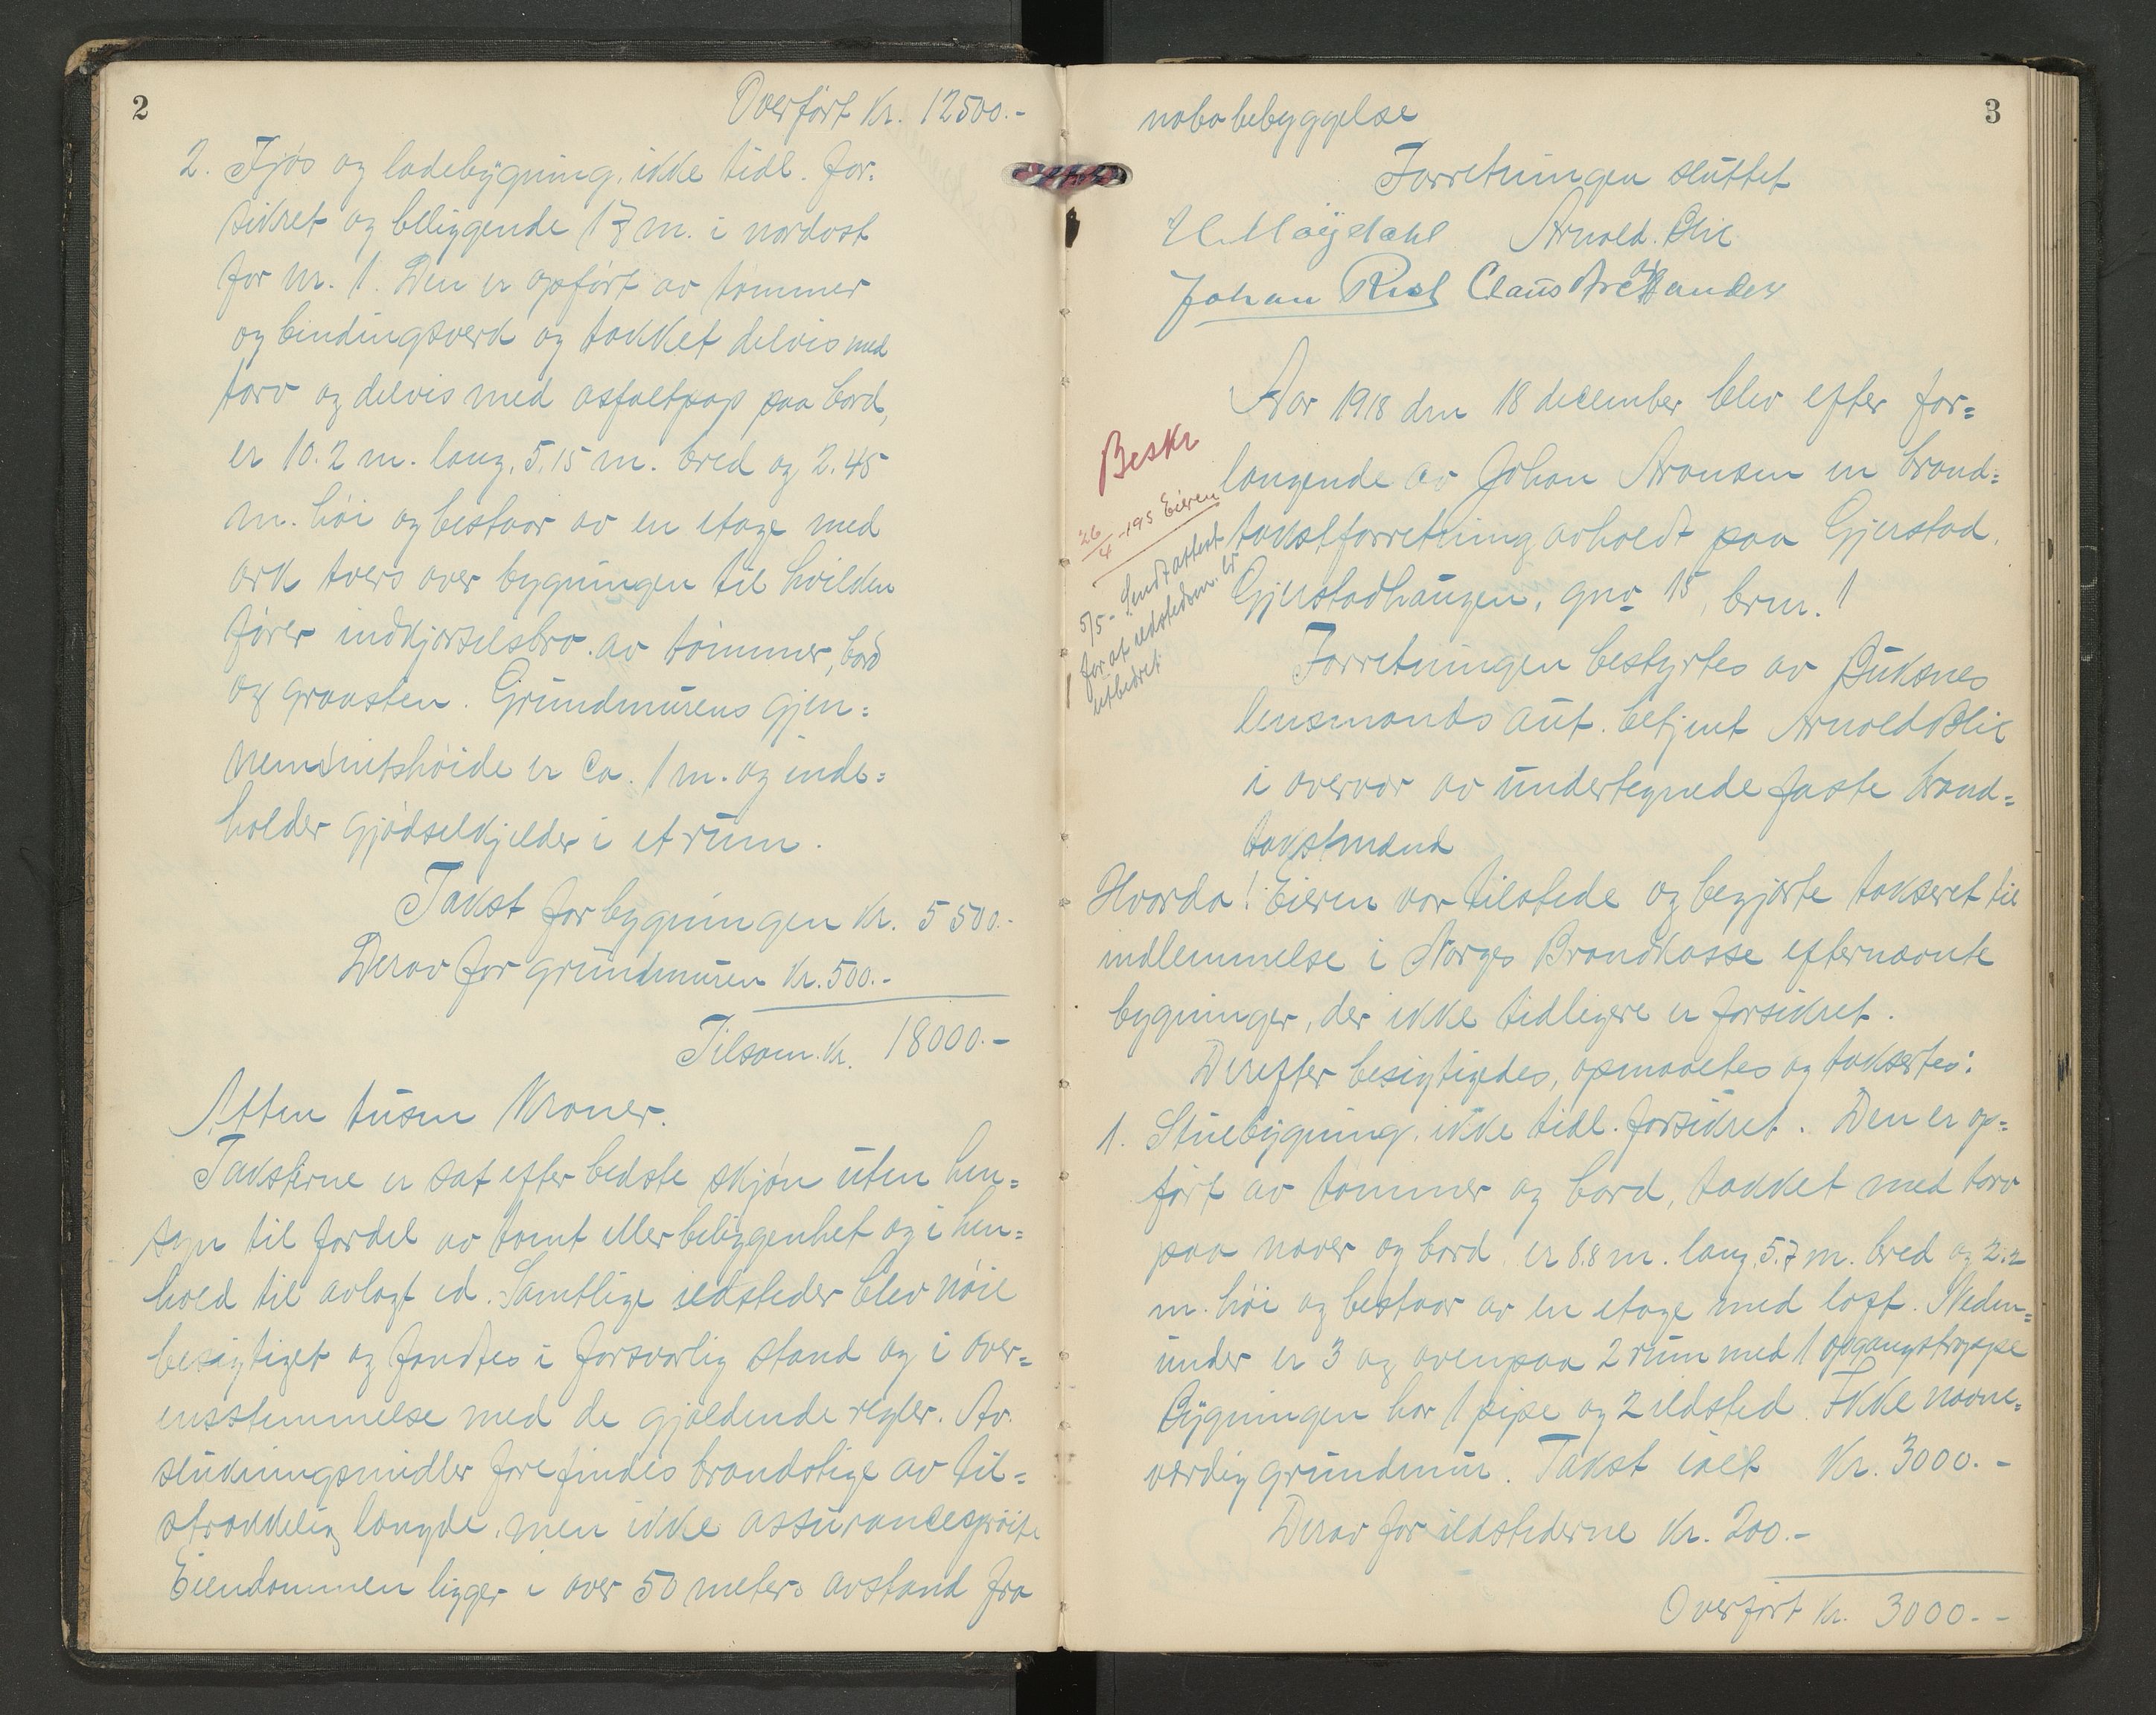 2
Overført Kr. 12500.-
2. Fjøs og ladebygning, ikke tidl. for=
sikret og beliggende 17 m. i nordost
for nr. 1. Den er opført av tømmer
og bindingsverk og tækket delvis med
torv og delvis med asfaltpap paa bord,
er 10.2 m. lang, 5.15 m. bred og 2.45
m. høi og bestaar av en etage med
ark tvers over bygningen til hvilken
fører indkjørselsbro av tømmer, bord
og graasten. Grundmurens gjen=
nemsnitshøide er ca. 1 m. og inde=
holder gjødselkjelder i et rum.
Takst for bygningen Kr. 5500.-
Derav for grundmuren Kr. 500.-
Tilsam. Kr. 18000.-
Atten tusen Kroner.
Taksterne er sat efter bedste skjøn uten hen=
syn til fordel av tomt eller beliggenhet og i hen=
hold til avlagt ed. Samtlige ildsteder blev nøie
besigtiget og fandtes i forsvarlig stand og i over=
ensstemmelse med de gjældende regler. Av
slukningsmidler forefindes brandstige av til=
strækkelig længde, men ikke assurancesprøite
Eiendommen ligger i over 50 meters avstand fra
3
nabobebyggelse
Forretningen sluttet
H. Møydahl Arnold Blix
Johan Rist Claus
Aar 1918 den 18 december blev efter for=
langende av Johan Aronsen en brand=
takstforretning avholdt paa Gjerstad,
Gjerstadhaugen, gno 15, brnr. 1
Beskr
26/4 -195 Eieren
5/5- Sendt attest
for at ildstedsm. er
utbedret
Forretningen bestyrtes av Buksnes
lensmands aut. betjent Arnold Blix
i overvær av undertegnede faste brand=
takstmænd
Hvorda! Eieren var tilstede og begjærte taksert til
indlemmelse i Norges Brandkasse efternævnte
bygninger, der ikke tidligere er forsikret.
Derefter besigtigedes, opmaaltes og taksertes:
1. Stuebygning, ikke tidl. forsikret. Den er op=
ført av tømmer og bord, tækket med torv
paa næver og bord, er 8.8 m. lang, 5.7 m. bred og 2.2
m. høi og bestaar av en etage med loft. Neden=
under er 3 og ovenpaa 2 rum med 1 opgangstrappe
Bygningen har 1 pipe og 2 ildsted. Ikke nævne=
værdig grundmur. Takst ialt Kr. 3000.-
Derav for ildstederne Kr. 200.-
Overført Kr. 3000.-